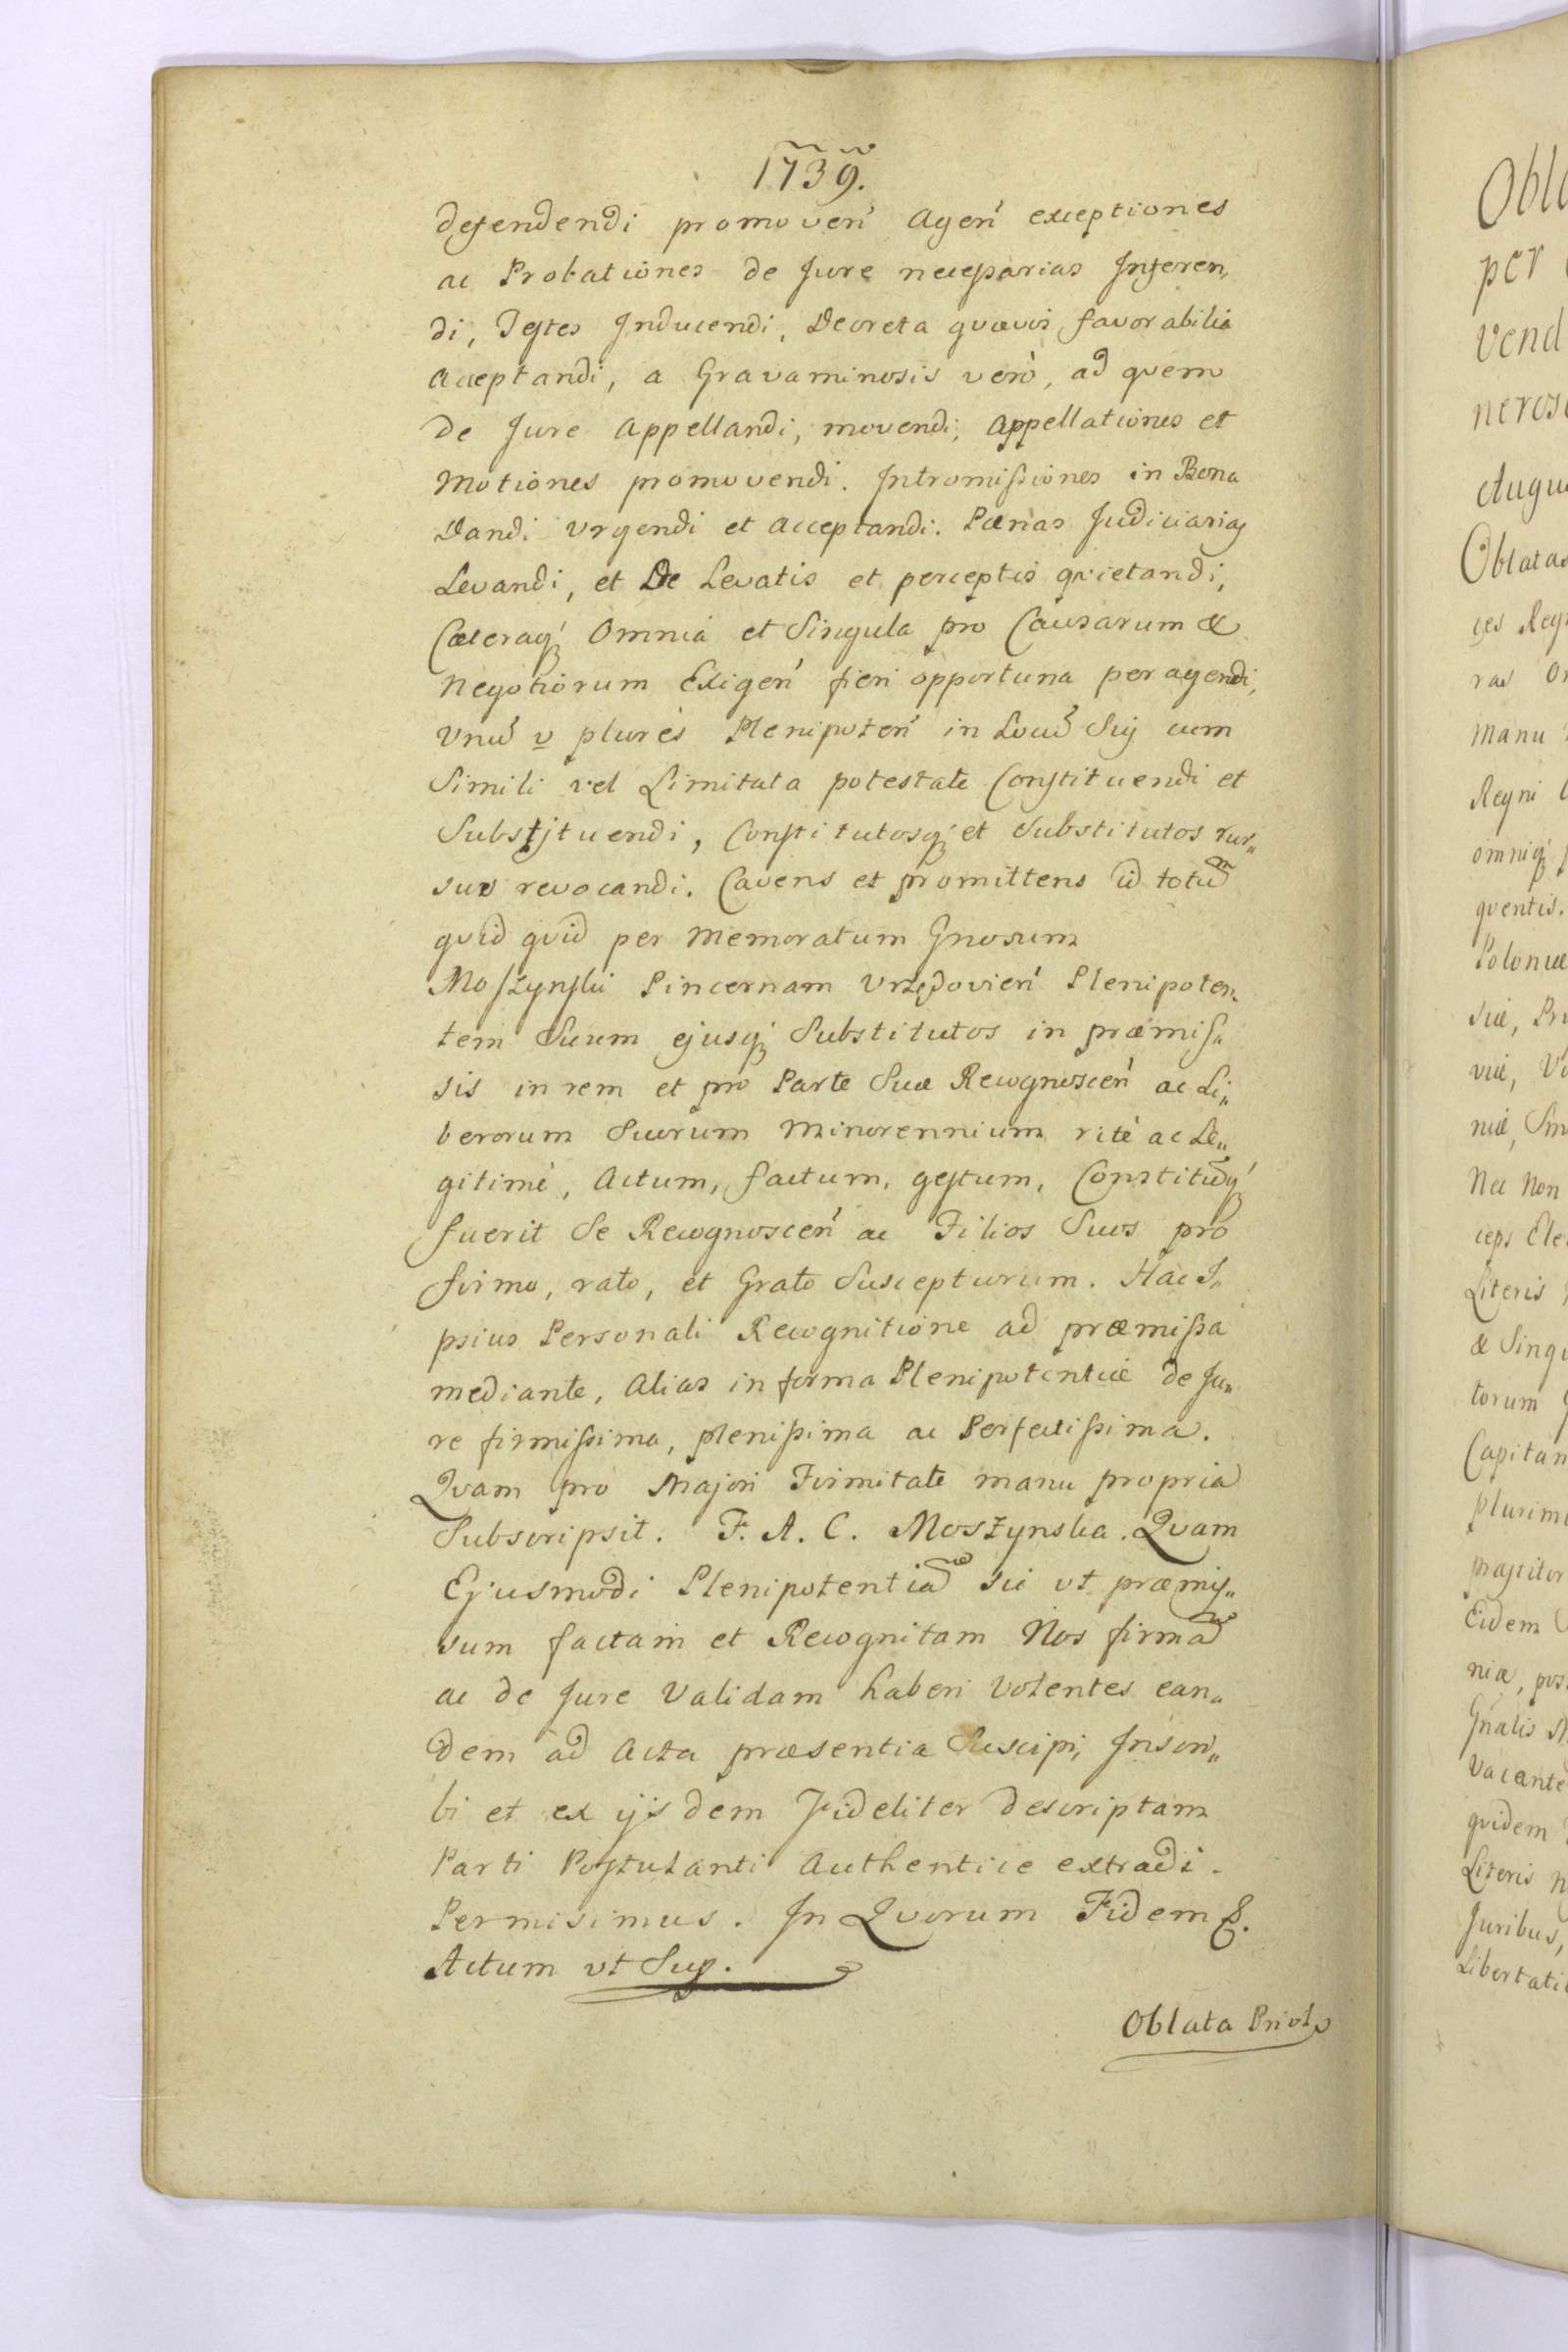 1739.
defendendi promoveń Ageń exceptiones
ac Probationes de Jure necessarias Inferen„
di, Testes Inducendi, Decreta quævis favorabilia
acceptandi, a Gravaminosis verò, ad quem
de Jure Appellandi, movendi, Appellationes et
Motiones promovendi. Intromissiones in Bona
Dandi Vrgendi et acceptandi. Pænas Judiciarias
Levandi, et De Levatis et perceptis qvietandi,
Cæteraq́ Omnia et Singula pro Causarum &
Negotiorum Exigeń fieri opportuna peragendi,
Vnum̃ v̱ plures Plenipoteń in Locum̃ Sui cum
Simili vel Limitata potestate Constituendi et
Substituendi, Constitutosq́ et Substitutos rur„
sus revocandi. Cavens et promittens id totum̃
qvid qvid per Memoratum Gnosum
Moszynski Pincernam Vrzędovień Plenipoten„
tem Suum ejusq́ Substitutos in præmis„
sis in rem et pro Parte Suæ Recognosceń ac Li„
berorum Suorum Minorennium ritè ac Le„
gitimè, Actum, factum, gestum, Constitutũq́
fuerit Se Recognosceń ac Filios Suos pro
firmo, rato, et Grato Suscepturum. Hac I„
psius Personali Recognitione ad præmissa
mediante, Alias in forma Plenipotentiæ de Ju„
re firmissima, plenissima ac Perfectissima.
Qvam pro Majori Firmitate manu propria
Subscripsit. F. A. C. Moszynska. Qvam
Ejusmodi Plenipotentiam̃ sic vt præmis„
sum factam et Recognitam Nos firmam̃
ac de Jure Validam haberi Volentes ean„
dem ad Acta præsentia Suscipi, Inscri„
bi et ex ijsdem Fideliter descriptam
Parti Postulanti Authentice extradi
Permisimus. In Qvorum Fidem &.
Actum vt Sup.
Oblata Privl
Obl
per
vend
neros
Augu
Oblatas
ces Reg
ras Or
manu
Regni
omniq́
qventis.
Poloniæ
siæ, Pr
viæ, Vo
niæ, Sm
Nec Non
ceps Ele
Literis
& Singu
torum
Capitan
plurim
præstitor
Eidem
nia, pos
Gnalis
Vacante
qvidem
Literis n
Juribus,
Libertati